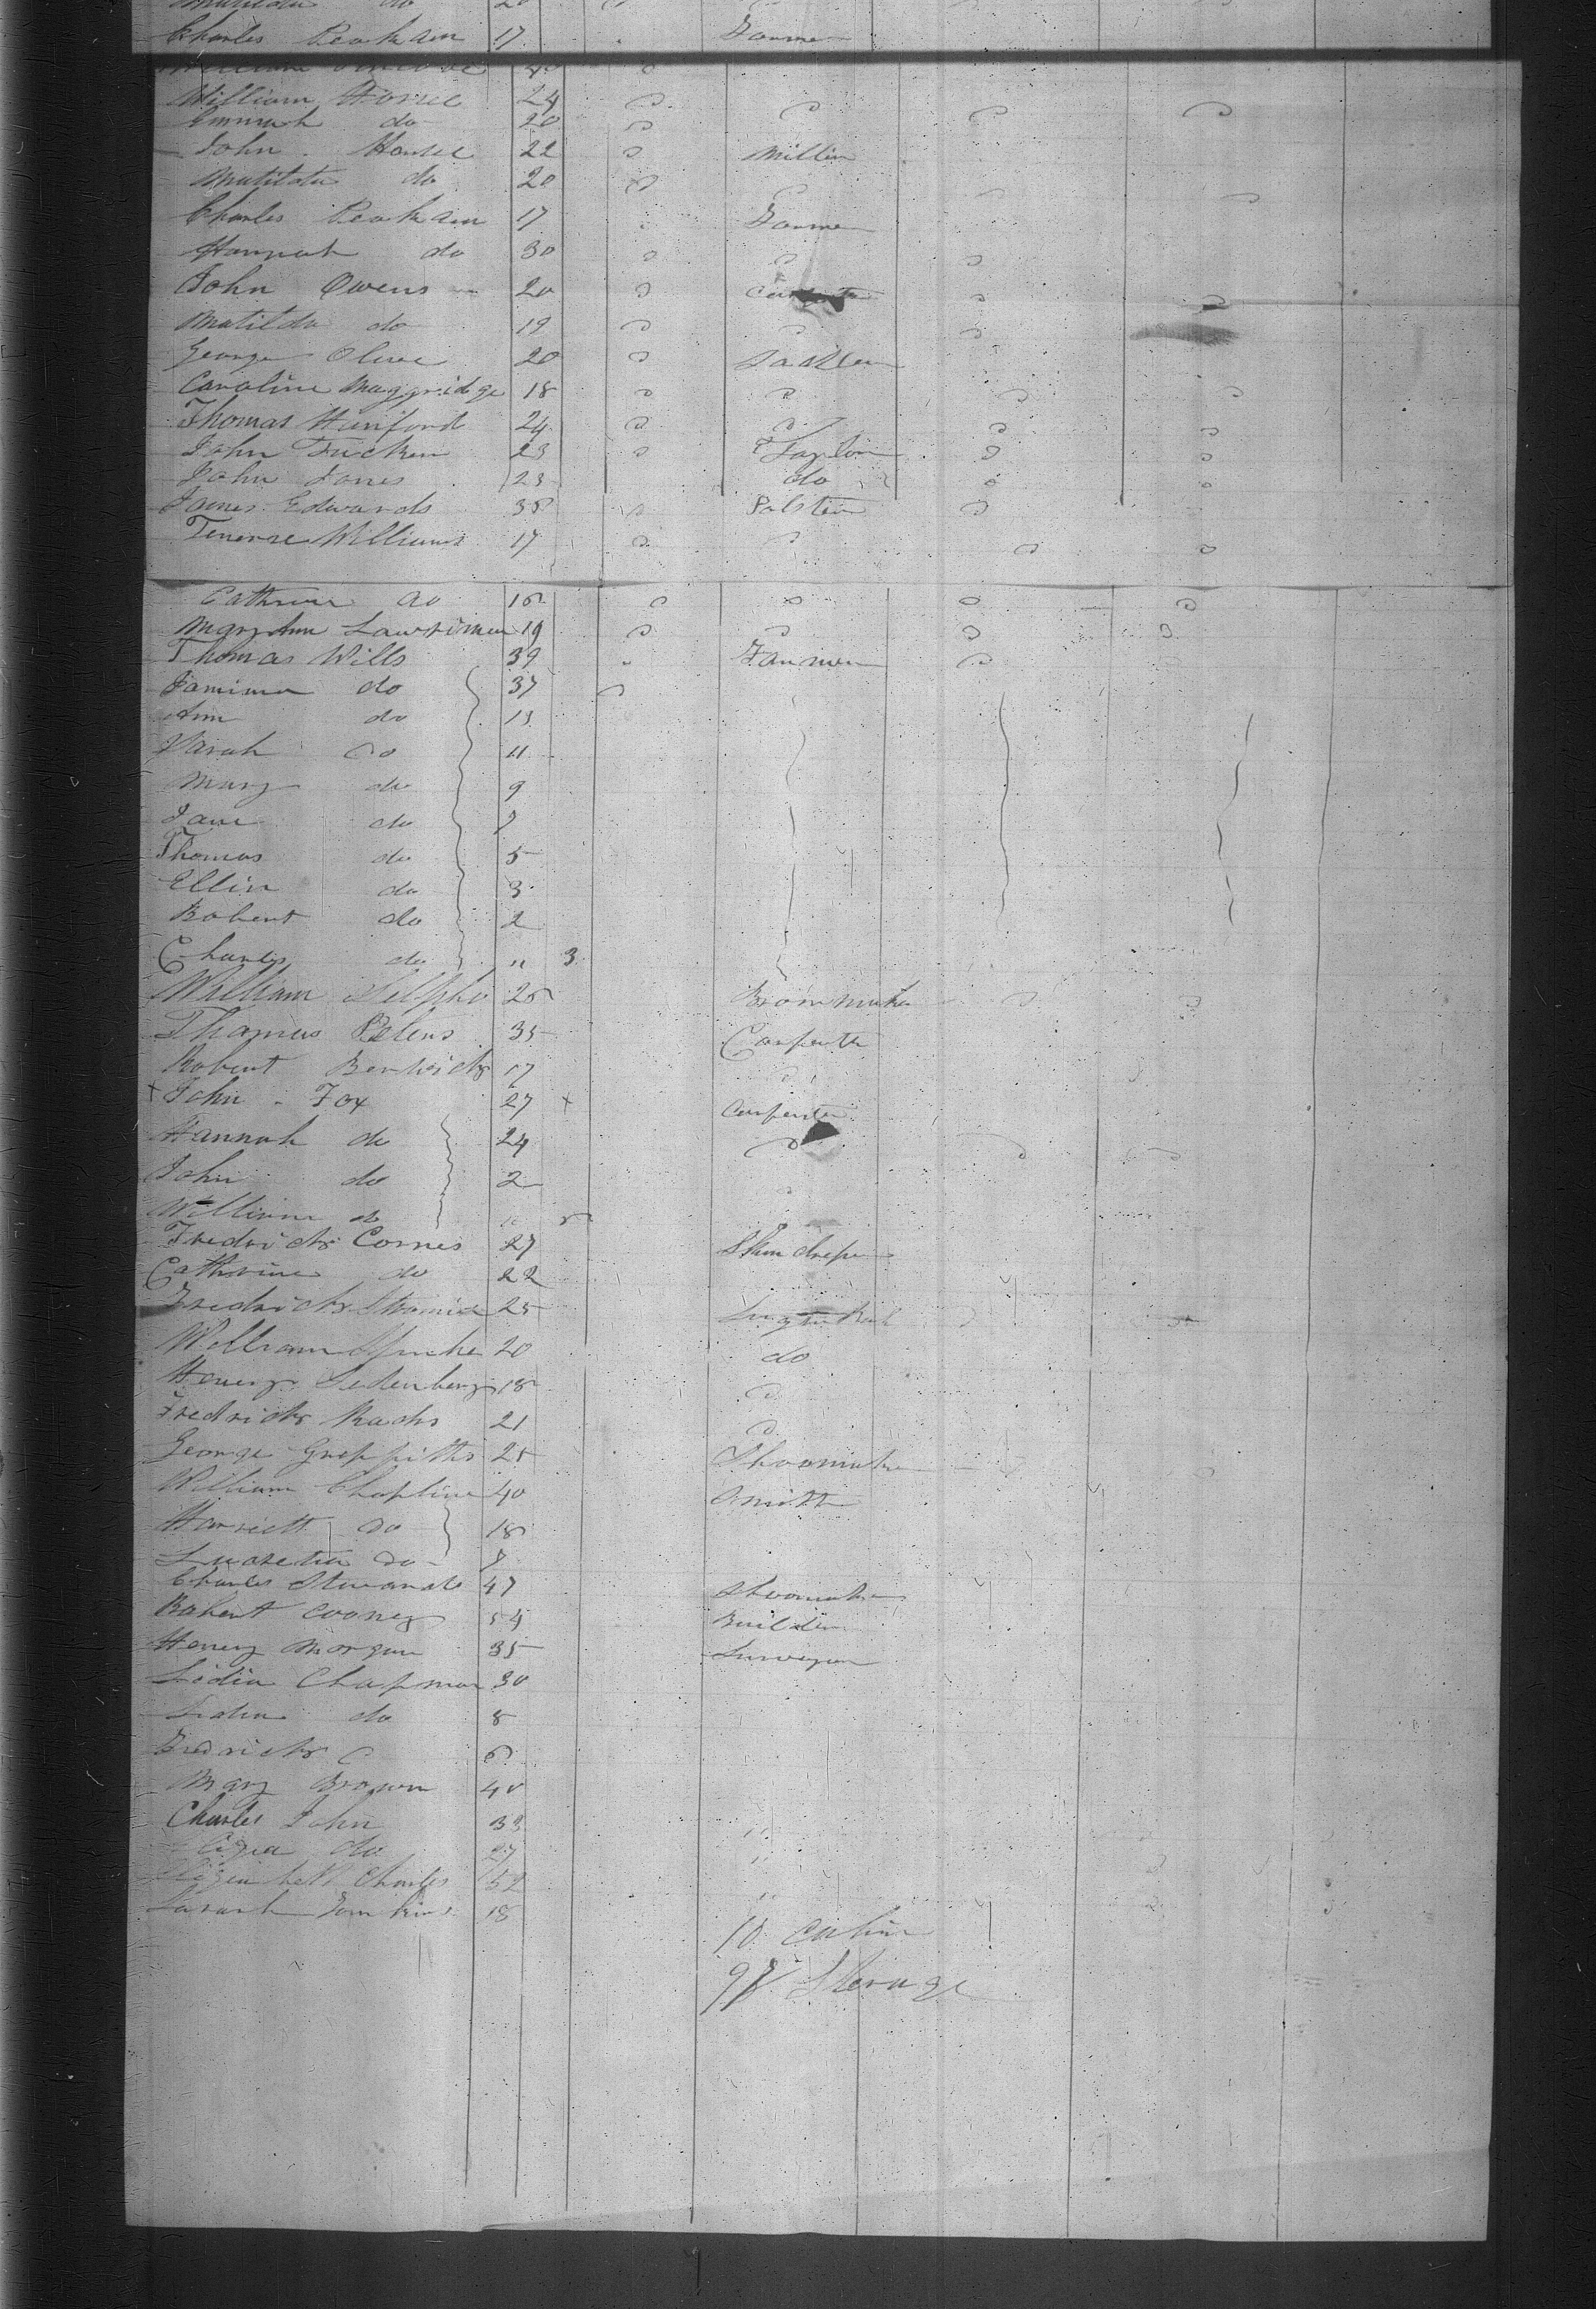 Matilda do 20
Charles Peakham 17 Farmer
William
William Horsee 24
Emmah do 20
John Housee 22 Miller
Matilda do 20
Charles Peakham 17 Farmer
Hannah do 30
John Owens 20 Carpenter
Matilda do 19
George Oliver 20 Sadller
Caroline Muggridge 18
Thomas Huniford 24
John Tucker 23 Taylor
John Jones 23 do
James Edwards 38
Williams 17
Cathrine do 16
Maryann 19
Thomas Wills 39 Farmer
Jamima do 37
Ann do 13
Sarah do 11
Mary do 9
Jane do 7
Thomas do 5
Ellin do 3
Robert do 2
Charles do " 3
William 26 Broommaker
Thomas Peters 35 Carpenter
Robert 17
+ John Fox 27 + Carpenter
Hannah do 24
John do 2
William do
Fredricks Cornes 27
Cathrine do 22
Fredricks 25
William 20 do
Henery 18
Fredricks 21
George Greffiths 25 Shoomaker
William Chapline 40 Smith
Harriett do 18
Lucretia do 7
Charles Stewards 47 Shoomaker
Robert Cooney 54 Builder
Henery Morgan 35 Surveyor
Lidia Chapman 30
Lidia do 8
Fredricks 6
Mary Brown 40
Charles John 33 "
Eliza do 27 "
Elizabeth Charles 52 "
Sarah Tomkins 18
10 Cabin
97 Sterage